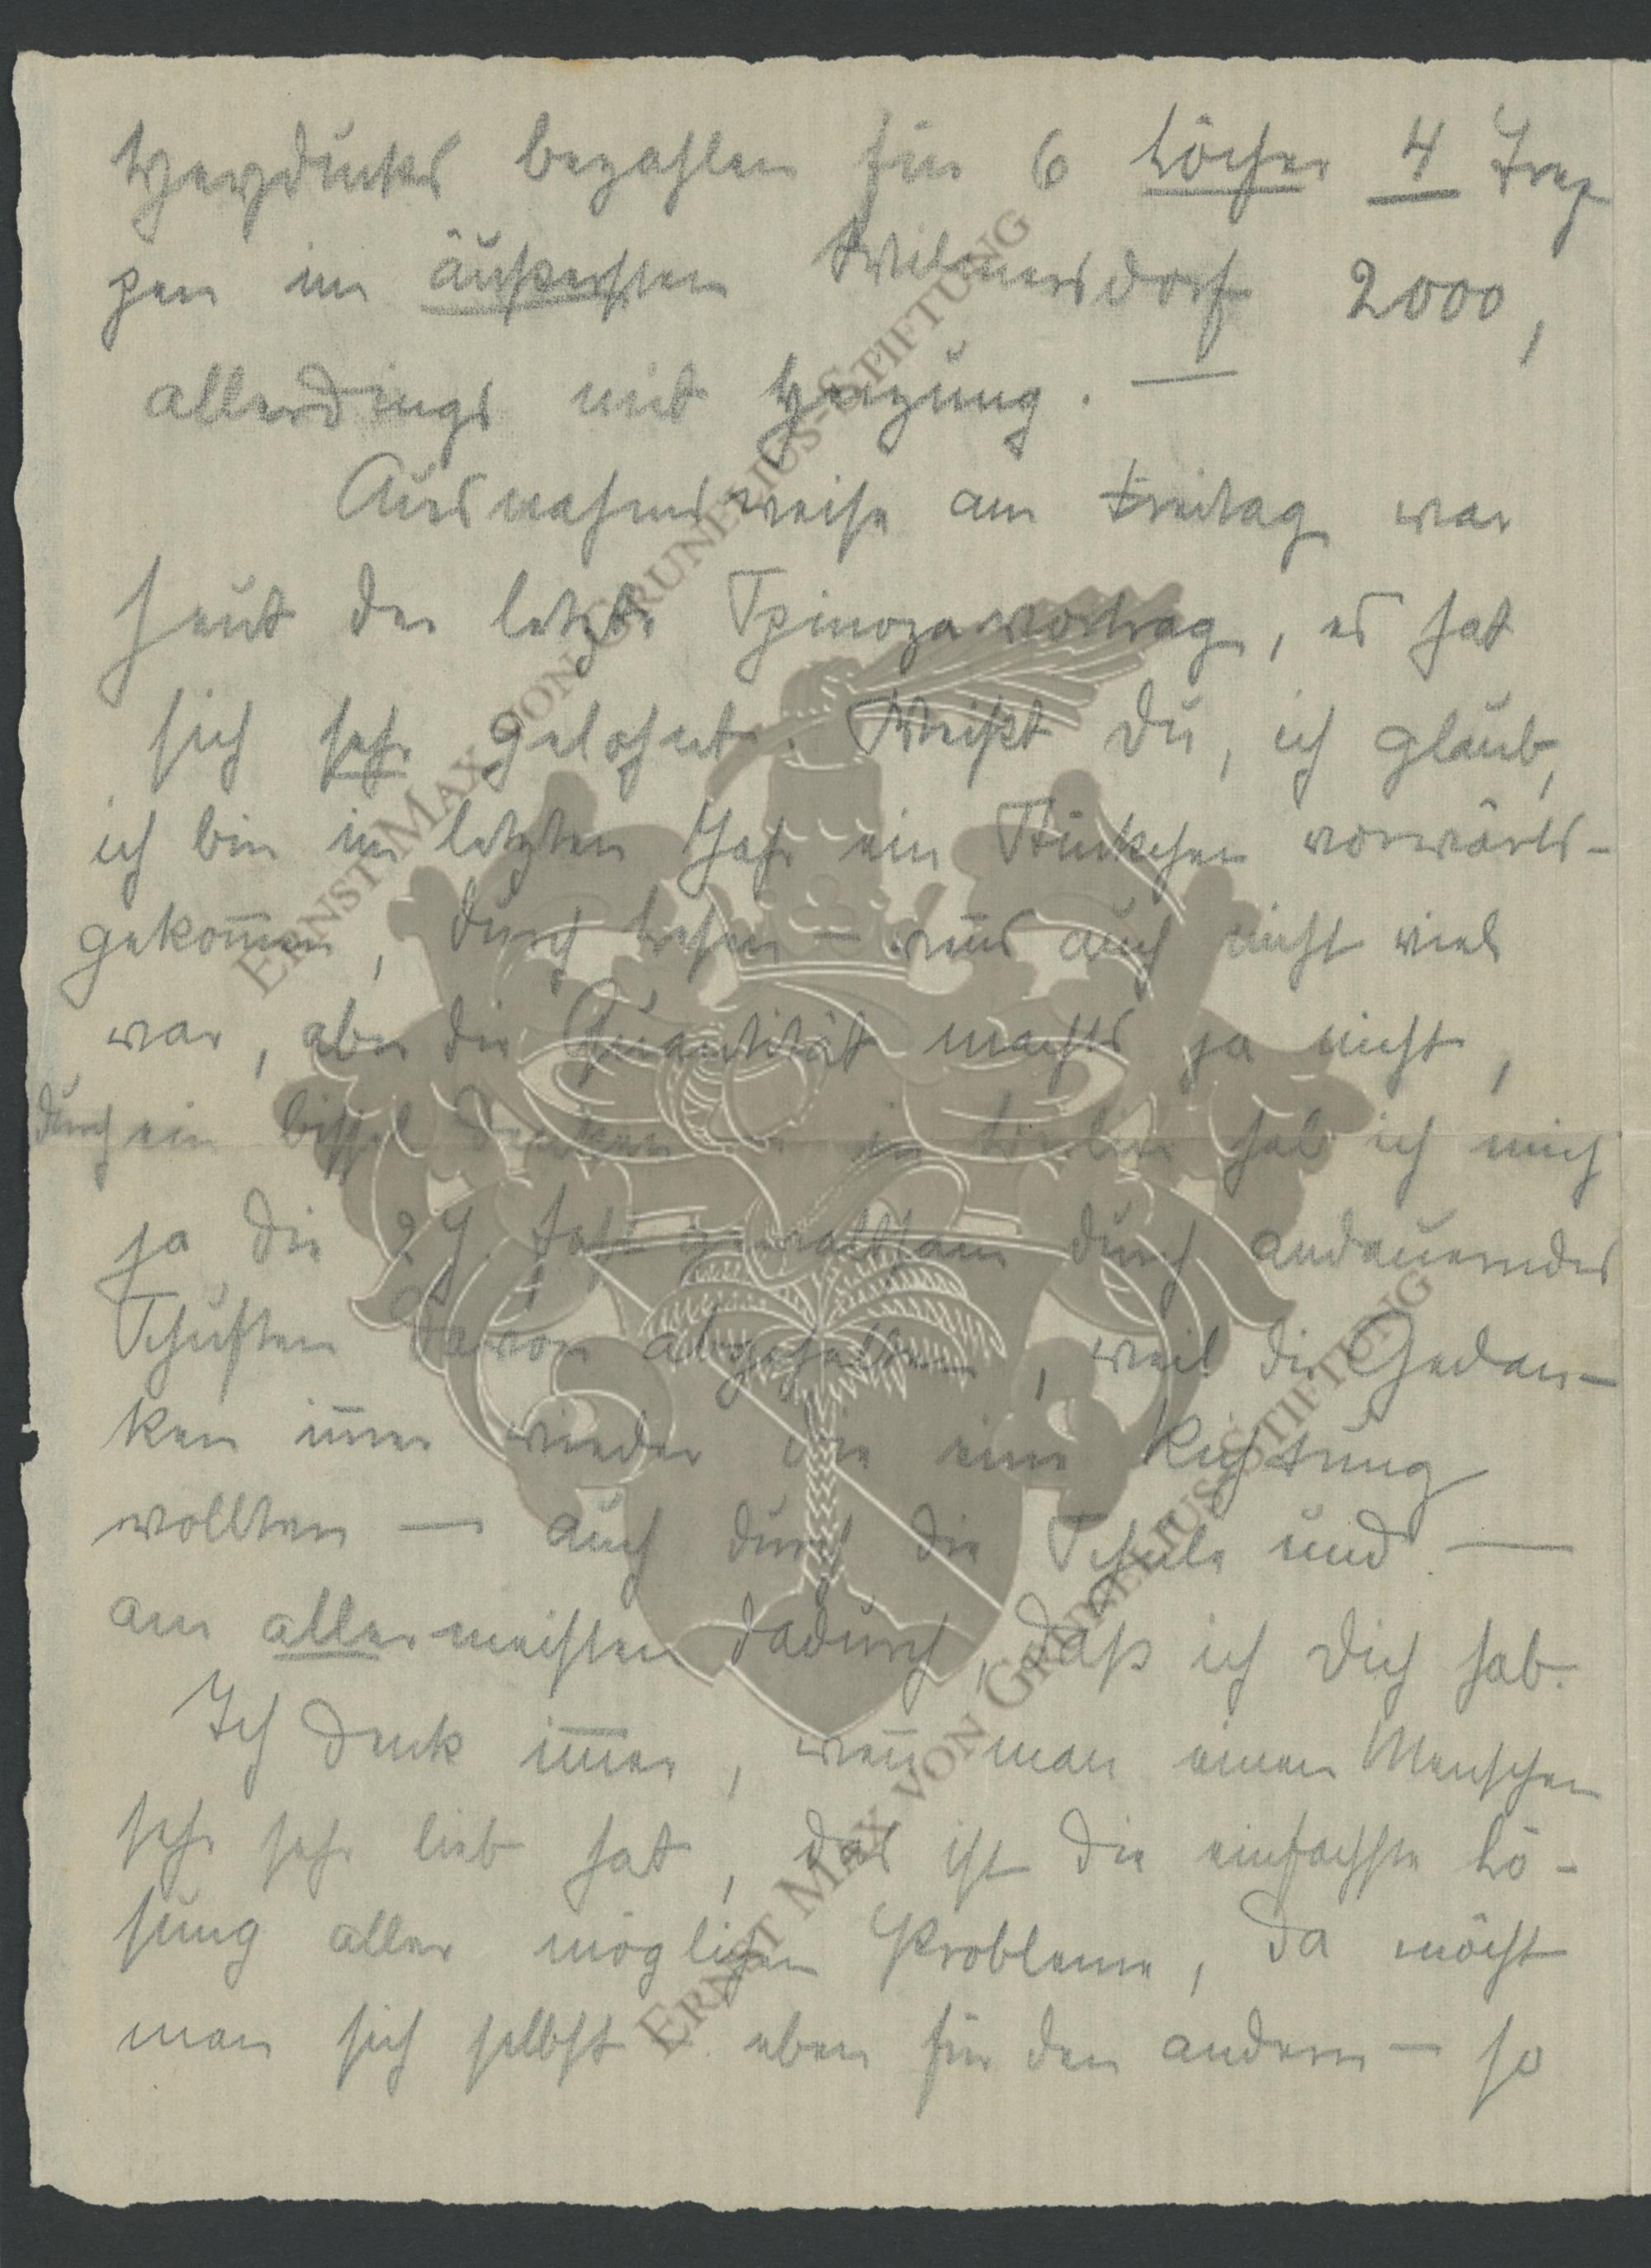 Heyducks bezahlen für 6 Löcher 4 Trep
pen im äußersten Wilmersdorf 2000,
allerdings mit Heizung. —
Ausnahmsweise am Freitag war
heut der letzte Spinozavortrag, es hat
sich sehr gelohnt. Weißt Du, ich glaub,
ich bin im letzten Jahr ein Stückchen vorwärts-
gekom̅en, durch Lesen – wen̅s auch nicht viel
war, aber die Quantität machts ja nicht,
durch ein bissel Denken – in hab ich mich
ja die 2 J. fast gewaltsam durch andauerndes
Schuften davon abgehalten, weil die Gedan-
ken im̅er wieder die eine Richtung
wollten — auch durch die Schule und —
am allermeisten dadurch, daß ich Dich hab.
Ich denk im̅er, wen̅ man einen Menschen
sehr sehr lieb hat, das ist die einfachste Lö-
sung aller möglichen Probleme, da möcht
man sich selbst – eben für den andern – so
ERNST MAX VON GRUNELIUS-STIFTUNG
ERNST MAX VON GRUNELIUS-STIFTUNG